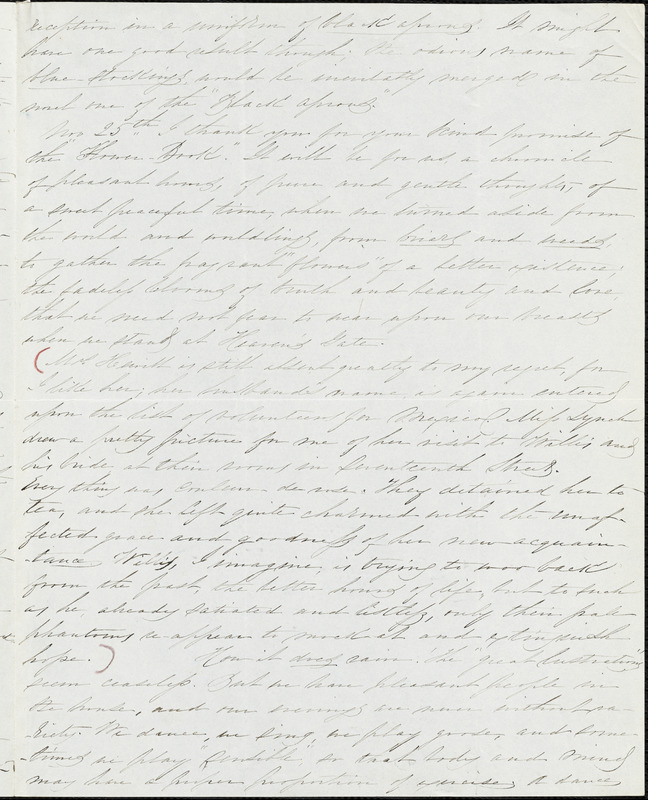 reception in a uniform of black aprons. It might
have one good result though; the odious name of
blue stockings, would be inevitably merged in the
novel one of the "Black aprons."
Nov 25th I thank you for your kind promise of
the "Flower-Book." It will be for us a chronicle
of pleasant hours, of pure and gentle thoughts, of
a sweet peaceful time, when we turned aside from
the world and worldlings, from briers and weeds,
to gather the fragrant "flowers" of a better existence;
the fadeless blooms of truth and beauty and love,
that we need not fear to wear upon our breasts
when we stand at Heavens Gate.
(Mrs Hewitt is still absent greatly to my regret, for
I like her; her husband's name, is again entered
upon the list of volunteers for Mexico. Miss Lynch
drew a pretty picture for me of her visit to Willis and
his bride, at their rooms in Seventeenth Street.
Every thing was couleur-de-rose. They detained her to
tea, and she left quite charmed with the unaf-
fected grace and goodness of her new acquain-
tance. Willis, I imagine, is trying to woo back
from the past, the better hours of life, but to such
as he, already satiated and listless, only their pale
phantoms re-appear to mock at and extinguish
hope.) How it does rain! the "great lustrations"
seem ceaseless. But we have pleasant people in
the house, and our evenings are never without va-
riety. We dance, we sing, we play goose, and some-
times we play "sensible," so that body and mind
may have a proper proportion of exercise. A dance